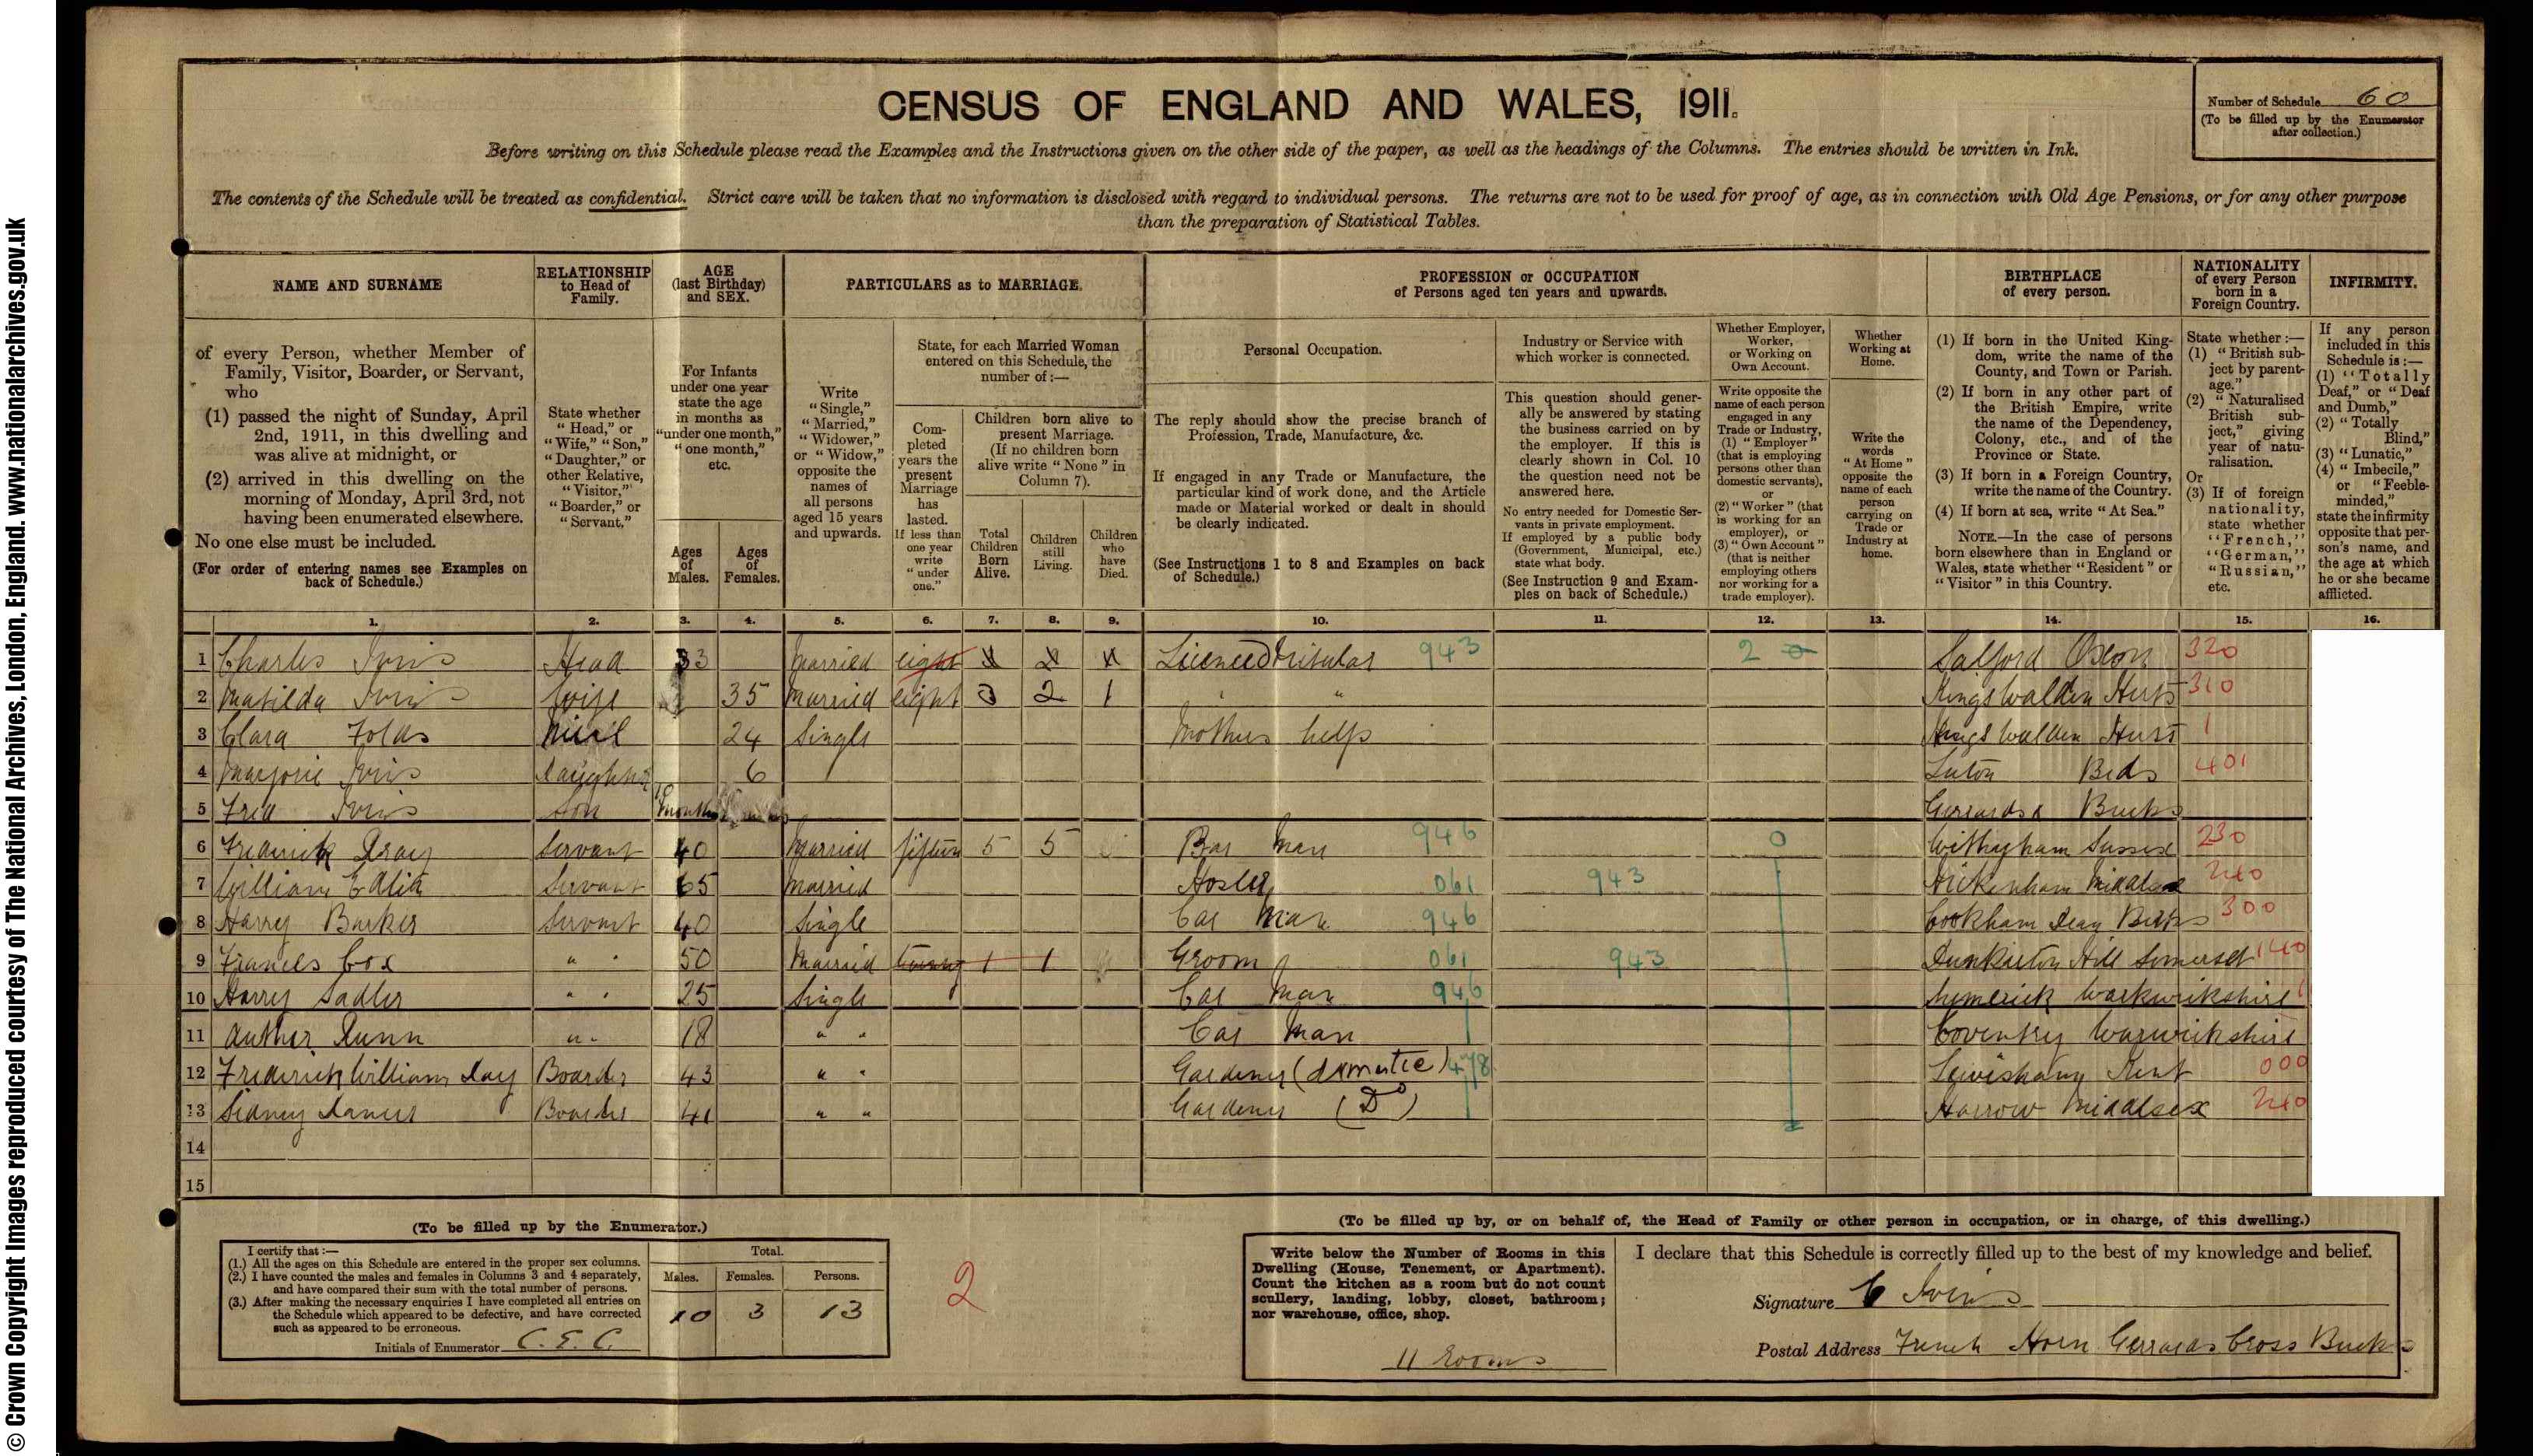 © Crown Copyright Images reproduced courtesy of The National Archives, London, England. www.nationalarchives.gov.uk
CENSUS OF ENGLAND AND WALES, 1911.
Number of Schedule 60
(To be filled up by the Enumerator after collection.)
Before writing on this Schedule please read the Examples and the Instructions given on the other side of the paper, as well as the headings of the Columns. The entries should be written in Ink.
The contents of the Schedule will be treated as confidential. Strict care will be taken that no information is disclosed with regard to individual persons. The returns are not to be used for proof of age, as in connection with Old Age Pensions, or for any other purpose
than the preparation of Statistical Tables.
NAME AND SURNAME
of every Person, whether Member of
Family, Visitor, Boarder, or Servant,
who
(1) passed the night of Sunday, April
2nd, 1911, in this dwelling and
was alive at midnight, or
(2) arrived in this dwelling on the
morning of Monday, April 3rd, not
having been enumerated elsewhere.
No one else must be included.
(For order of entering names see Examples on
back of Schedule.)
RELATIONSHIP
to Head of
Family.
State whether
"Head," or
"Wife," "Son,"
"Daughter," or
other Relative,
"Visitor,"
"Boarder," or
"Servant."
AGE
(last Birthday)
and SEX.
For Infants
under one year
state the age
in months as
"under one month,"
"one month,"
etc.
Ages
of
Males.
Ages
of
Females.
PARTICULARS as to MARRIAGE.
Write
"Single,"
"Married,"
"Widower,"
or "Widow,"
opposite the
names of
all persons
aged 15 years
and upwards.
State, for each Married Woman
entered on this Schedule, the
number of:—
Com-
pleted
years the
present
Marriage
has
lasted.
If less than
one year
write
"under
one."
Children born alive to
present Marriage.
(If no children born
alive write "None" in
Column 7).
Total
Children
Born
Alive.
Children
still
Living.
Children
who
have
Died.
PROFESSION or OCCUPATION
of Persons aged ten years and upwards.
Personal Occupation.
The reply should show the precise branch of
Profession, Trade, Manufacture, &c.
If engaged in any Trade or Manufacture, the
particular kind of work done, and the Article
made or Material worked or dealt in should
be clearly indicated.
(See Instructions 1 to 8 and Examples on back
of Schedule.)
Industry or Service with
which worker is connected.
This question should gener-
ally be answered by stating
the business carried on by
the employer. If this is
clearly shown in Col. 10
the question need not be
answered here.
No entry needed for Domestic Ser-
vants in private employment.
If employed by a public body
(Government, Municipal, etc.)
state what body.
(See Instruction 9 and Exam-
ples on back of Schedule.)
Whether Employer,
Worker,
or Working on
Own Account.
Write opposite the
name of each person
engaged in any
Trade or Industry,
(1) "Employer"
(that is employing
persons other than
domestic servants),
or
(2) "Worker" (that
is working for an
employer), or
(3) "Own Account"
(that is neither
employing others
nor working for a
trade employer).
Whether
Working at
Home.
Write the
words
"At Home"
opposite the
name of each
person
carrying on
Trade or
Industry at
home.
BIRTHPLACE
of every person.
(1) If born in the United King-
dom, write the name of the
County, and Town or Parish.
(2) If born in any other part of
the British Empire, write
the name of the Dependency,
Colony, etc., and of the
Province or State.
(3) If born in a Foreign Country,
write the name of the Country.
(4) If born at sea, write "At Sea."
NOTE.—In the case of persons
born elsewhere than in England or
Wales, state whether "Resident" or
"Visitor" in this Country.
NATIONALITY
of every Person
born in a
Foreign Country.
State whether:—
(1) "British sub-
ject by parent-
age."
(2) "Naturalised
British sub-
ject," giving
year of natu-
ralisation.
Or
(3) If of foreign
nationality,
state whether
"French,"
"German,"
"Russian,"
etc.
INFIRMITY.
If any person
included in this
Schedule is:—
(1) "Totally
Deaf," or "Deaf
and Dumb,"
(2) "Totally
Blind,"
(3) "Lunatic,"
(4) "Imbecile,"
or "Feeble-
minded,"
state the infirmity
opposite that per-
son's name, and
the age at which
he or she became
afflicted.
1. 2. 3. 4. 5. 6. 7. 8. 9. 10. 11. 12. 13. 14. 15. 16.
1 Charles Ivins Head 33 Married eight 943 2 Salford Oxon 320
2 Matilda Ivins Wife 35 Married eight 3 2 1 " Kings Walden Herts 310
3 Clara Folds 24 Single Mothers help Kings Walden 1
4 Marjorie Ivins Daughter 6 Luton Beds 401
5 Fred Ivins Son months Bucks
6 Fredrick Servant 40 Married fifteen 5 5 Bar Man 946 0 Withyham Sussex 230
7 William Servant 65 Married Hosler 061 943 Ickenham
8 Harry Barker Servant 40 Single Car Man 946 Cookham Dean 300
9 Frances Cox " " 50 Married 1 1 Groom 061 943 Dunkerton Hill Somerset 140
10 Harry Sadler " " 25 Single Car Man 946
11 Auther Dunn " " 18 " " Car Man Coventry Warwickshire
12 Frederick William Day Boarder 43 " " Gardener (domestic) 478 Lewisham Kent 000
13 Sidney Boarder 41 " " Gardener (Do) Harrow Middlesex 240
14
15
(To be filled up by the Enumerator.)
I certify that:—
(1.) All the ages on this Schedule are entered in the proper sex columns.
(2.) I have counted the males and females in Columns 3 and 4 separately,
and have compared their sum with the total number of persons.
(3.) After making the necessary enquiries I have completed all entries on
the Schedule which appeared to be defective, and have corrected
such as appeared to be erroneous.
Initials of Enumerator C. E. C.
Total.
Males. Females. Persons.
10 3 13
2
(To be filled up by, or on behalf of, the Head of Family or other person in occupation, or in charge, of this dwelling.)
Write below the Number of Rooms in this
Dwelling (House, Tenement, or Apartment).
Count the kitchen as a room but do not count
scullery, landing, lobby, closet, bathroom;
nor warehouse, office, shop.
11 Rooms
I declare that this Schedule is correctly filled up to the best of my knowledge and belief.
Signature C Ivins
Postal Address French Horn Gerrards Cross Bucks